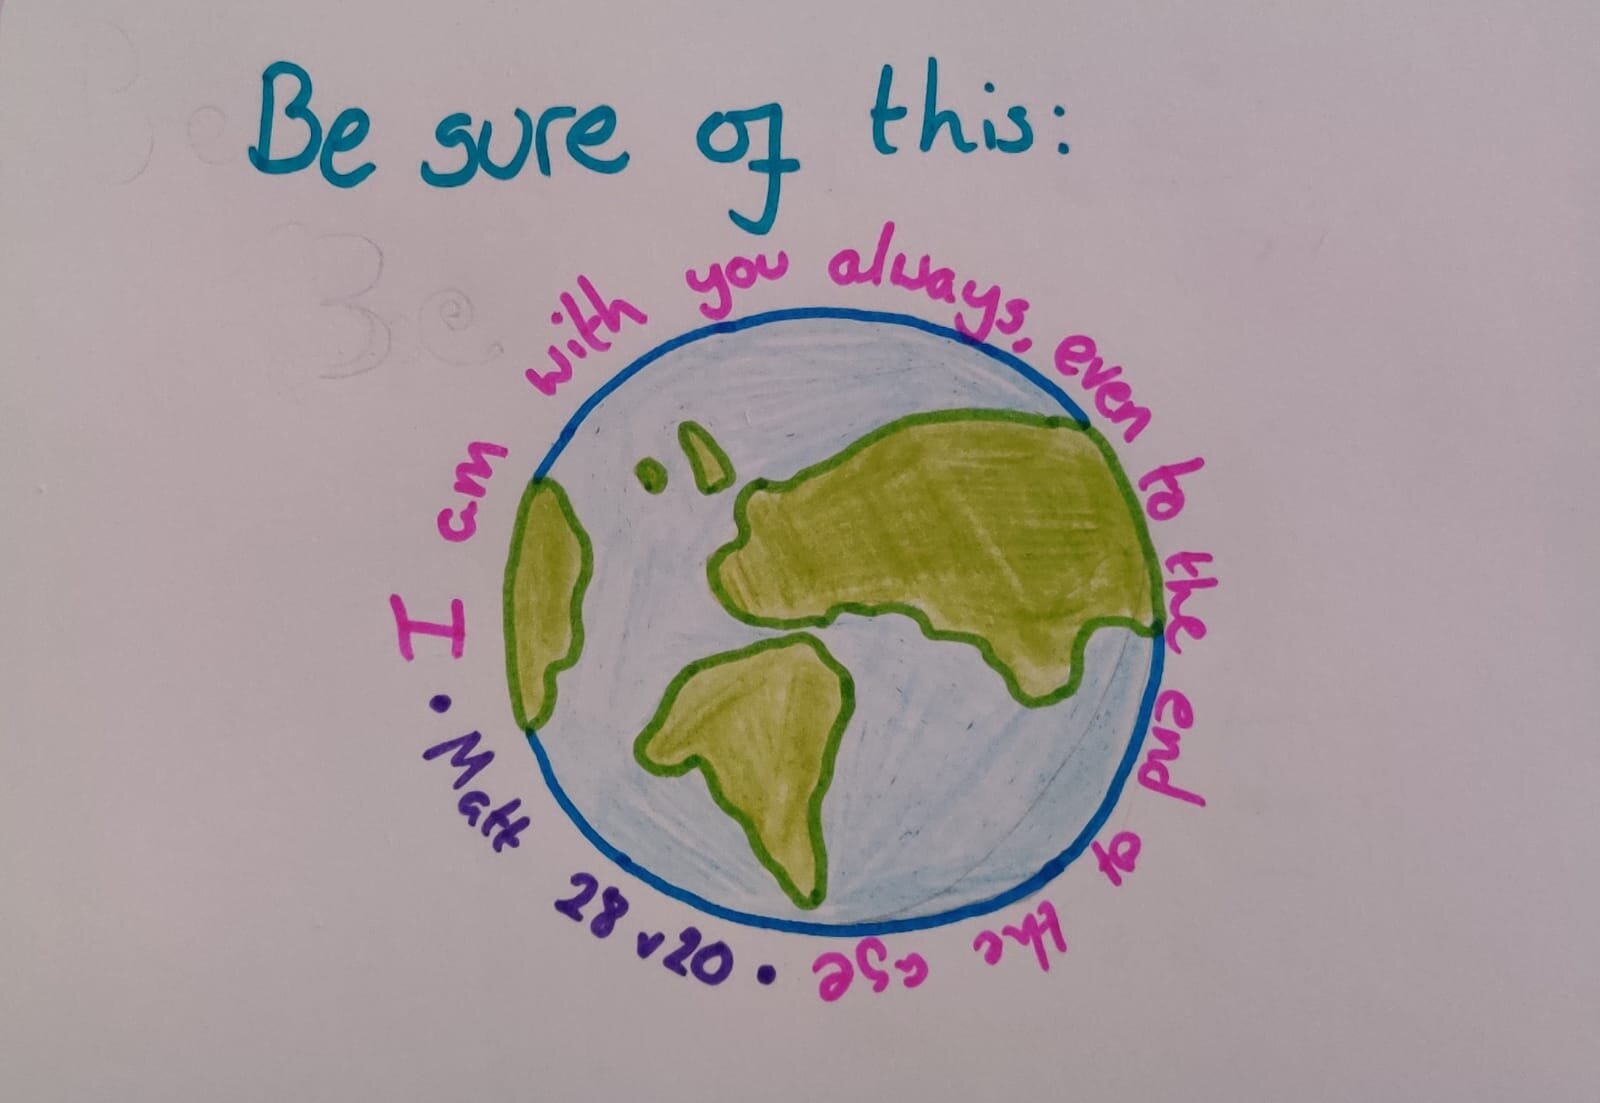 Be sure of this:
I am with you always, even to the end of the age
• Matt 28 v 20 •
Be
Be